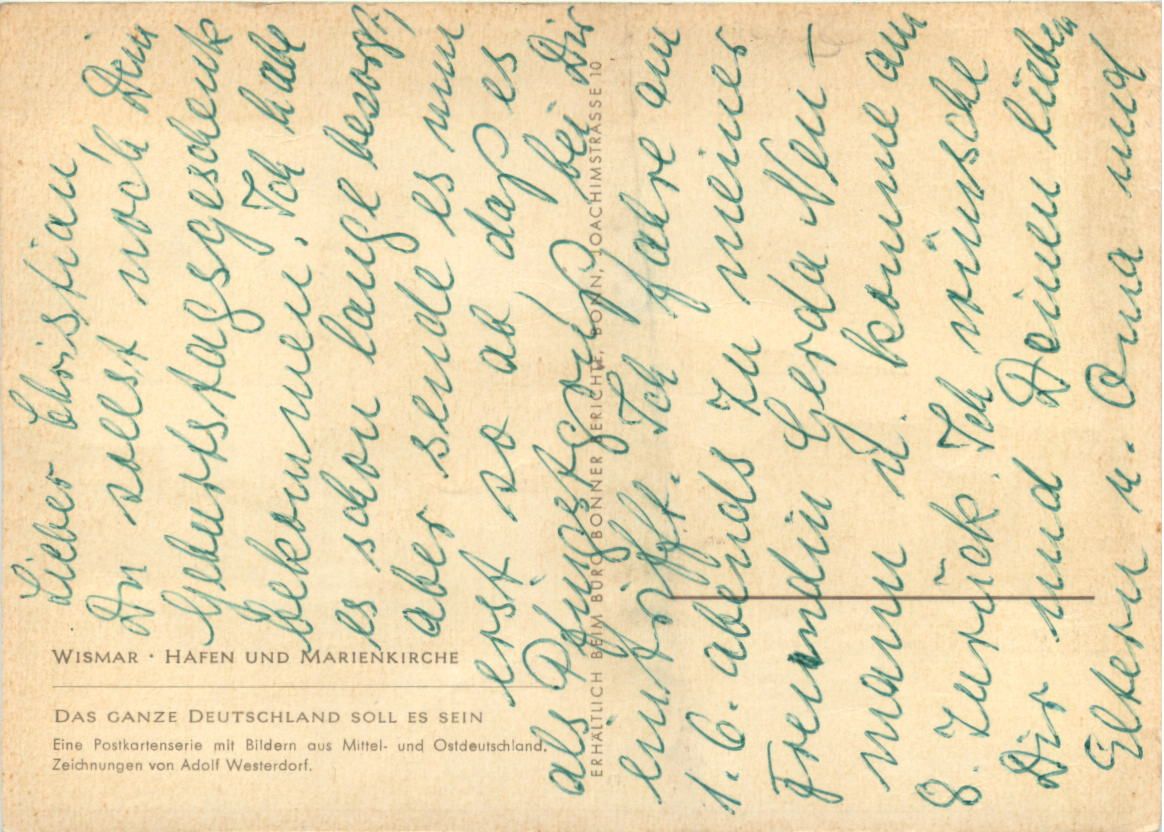 Lieber Christian,
Du sollst noch Dein
Geburtstagsgeschenk
bekommen. Ich habe
es schon lange besorgt,
aber sende es nun
erst so ab, daß es
als Pfingstgruß bei Dir
eintrifft. Ich fahre am
1. 6. abends zu meiner
Freundin Gerda Neu-
mann u. komme am
8. zurück. Ich wünsche
Dir und Deinen lieben
Eltern u. Oma und
WISMAR · HAFEN UND MARIENKIRCHE
DAS GANZE DEUTSCHLAND SOLL ES SEIN
Eine Postkartenserie mit Bildern aus Mittel- und Ostdeutschland.
Zeichnungen von Adolf Westerdorf.
ERHÄLTLICH BEIM BÜRO BONNER BERICHTE, BONN, JOACHIMSTRASSE 10